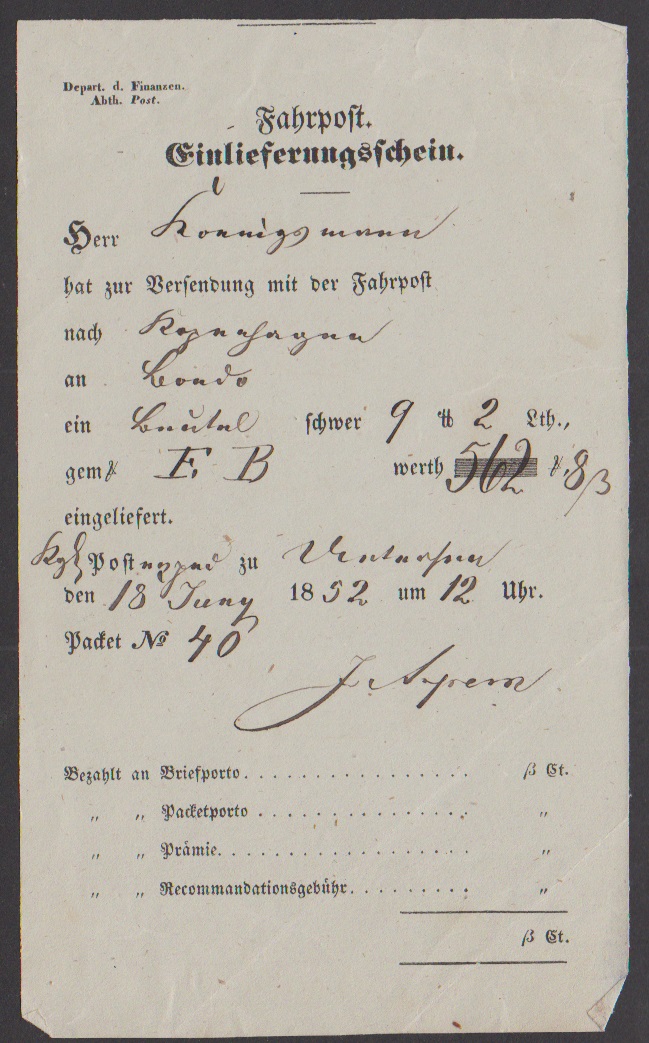 Depart. d. Finanzen.
Abth. Post.
Fahrpost.
Einlieferungsschein.
Herr Koenigsmann
hat zur Versendung mit der Fahrpost
nach Kopenhagen
an
ein Beutel schwer 9 ℔ 2 Lth.,
gem. F. B werth 562 8 β
eingeliefert.
Kgl Post zu Uetersen
den 18 Juny 1852 um 12 Uhr.
Packet № 40
Bezahlt an Briefporto. . . . . . . . . . . . . . . . . . β Ct.
„ „ Packetporto . . . . . . . . . . . . . . . . . „
„ „ Prämie. . . . . . . . . . . . . . . . . . . . „
„ „ Recommandationsgebühr. . . . . . . . . „
β Ct.